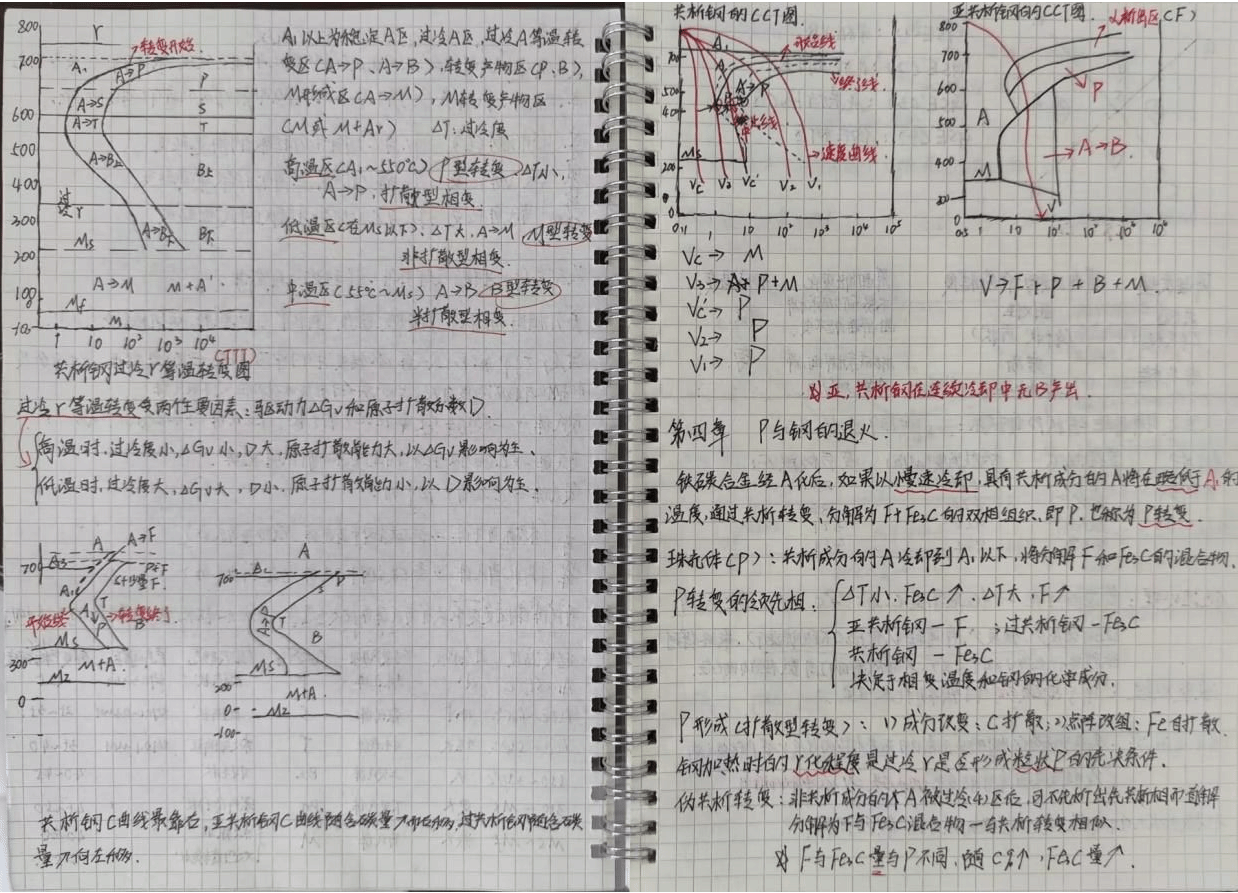 800
γ
转变开始.
700
A₁
A→P
P
A→S
S
600
A→T
T
500
A→B上
B上
400
过冷γ
300
A→B下
B下
Ms
200
A→M
M+A'
100
Mf
M
1
10
10²
10³
10⁴
共析钢过冷γ等温转变图
(TTT)
A₁以上为稳定A区,过冷A区,过冷A等温转
变区(A→P、A→B),转变产物区(P、B),
M形成区(A→M),M转变产物区
(M或M+Ar) ΔT:过冷度
高温区(A₁~550℃) P型转变.ΔT小,
A→P,扩散型相变.
低温区(在Ms以下).ΔT大.A→M M型转变
非扩散型相变.
中温区(55℃~Ms) A→B B型转变
半扩散型相变.
过冷γ等温转变受两个主要因素:驱动力ΔGv和原子扩散系数D.
高温时,过冷度小,ΔGv小,D大,原子扩散能力大,以ΔGv影响为主.
低温时,过冷度大,ΔGv大,D小,原子扩散能力小,以D影响为主.
A
A→F
70
P+F
A₁
T
开始线
P
转变终了
B
Ms
300
M+A
Mz
0
A
700
P
S
T
B
Ms
200
M+A
0
Mz
-100
共析钢C曲线最靠右,亚共析钢C曲线随含碳量↗而右移,过共析钢随含碳
量↗向左移.
共析钢的CCT图.
A₁
开始线
700
A→P
终了线
500
400
Ms
速度曲线
200
Vc
V₃
Vc'
V₂
V₁
0
0.1
1
10
10²
10³
10⁴
10⁵
Vc→ M
V₃→ P+M
Vc'→ P
V₂→ P
V₁→ P
亚共析钢的CCT图.
析出区(F)
800
700
600
P
A
500
A→B
400
M
V
0
0.5
1
10
10²
10³
10⁴
10⁵
V→F+P+B+M.
亚,共析钢在连续冷却中无B产出.
第四章 P与钢的退火.
铁碳合金经A化后,如果以慢速冷却,具有共析成分的A将在略低于A₁的
温度,通过共析转变,分解为F+Fe₃C的双相组织,即P,也称为P转变.
珠光体(P):共析成分的A冷却到A₁以下,将分解F和Fe₃C的混合物.
P转变的领先相.
ΔT小.Fe₃C↗.ΔT大,F↗
亚共析钢-F,;过共析钢-Fe₃C
共析钢-Fe₃C
决定于相变温度和钢的化学成分.
P形成(扩散型转变):1)成分改变:C扩散;2)点阵改组:Fe自扩散.
钢加热时的γ化程度是过冷γ是否形成粒状P的先决条件.
伪共析转变:非共析成分的A被过冷(4)区后,可不先析出先共析相而直接
分解为F与Fe₃C混合物-与共析转变相似.
F与Fe₃C量与P不同,随C%↗,Fe₃C量↗.